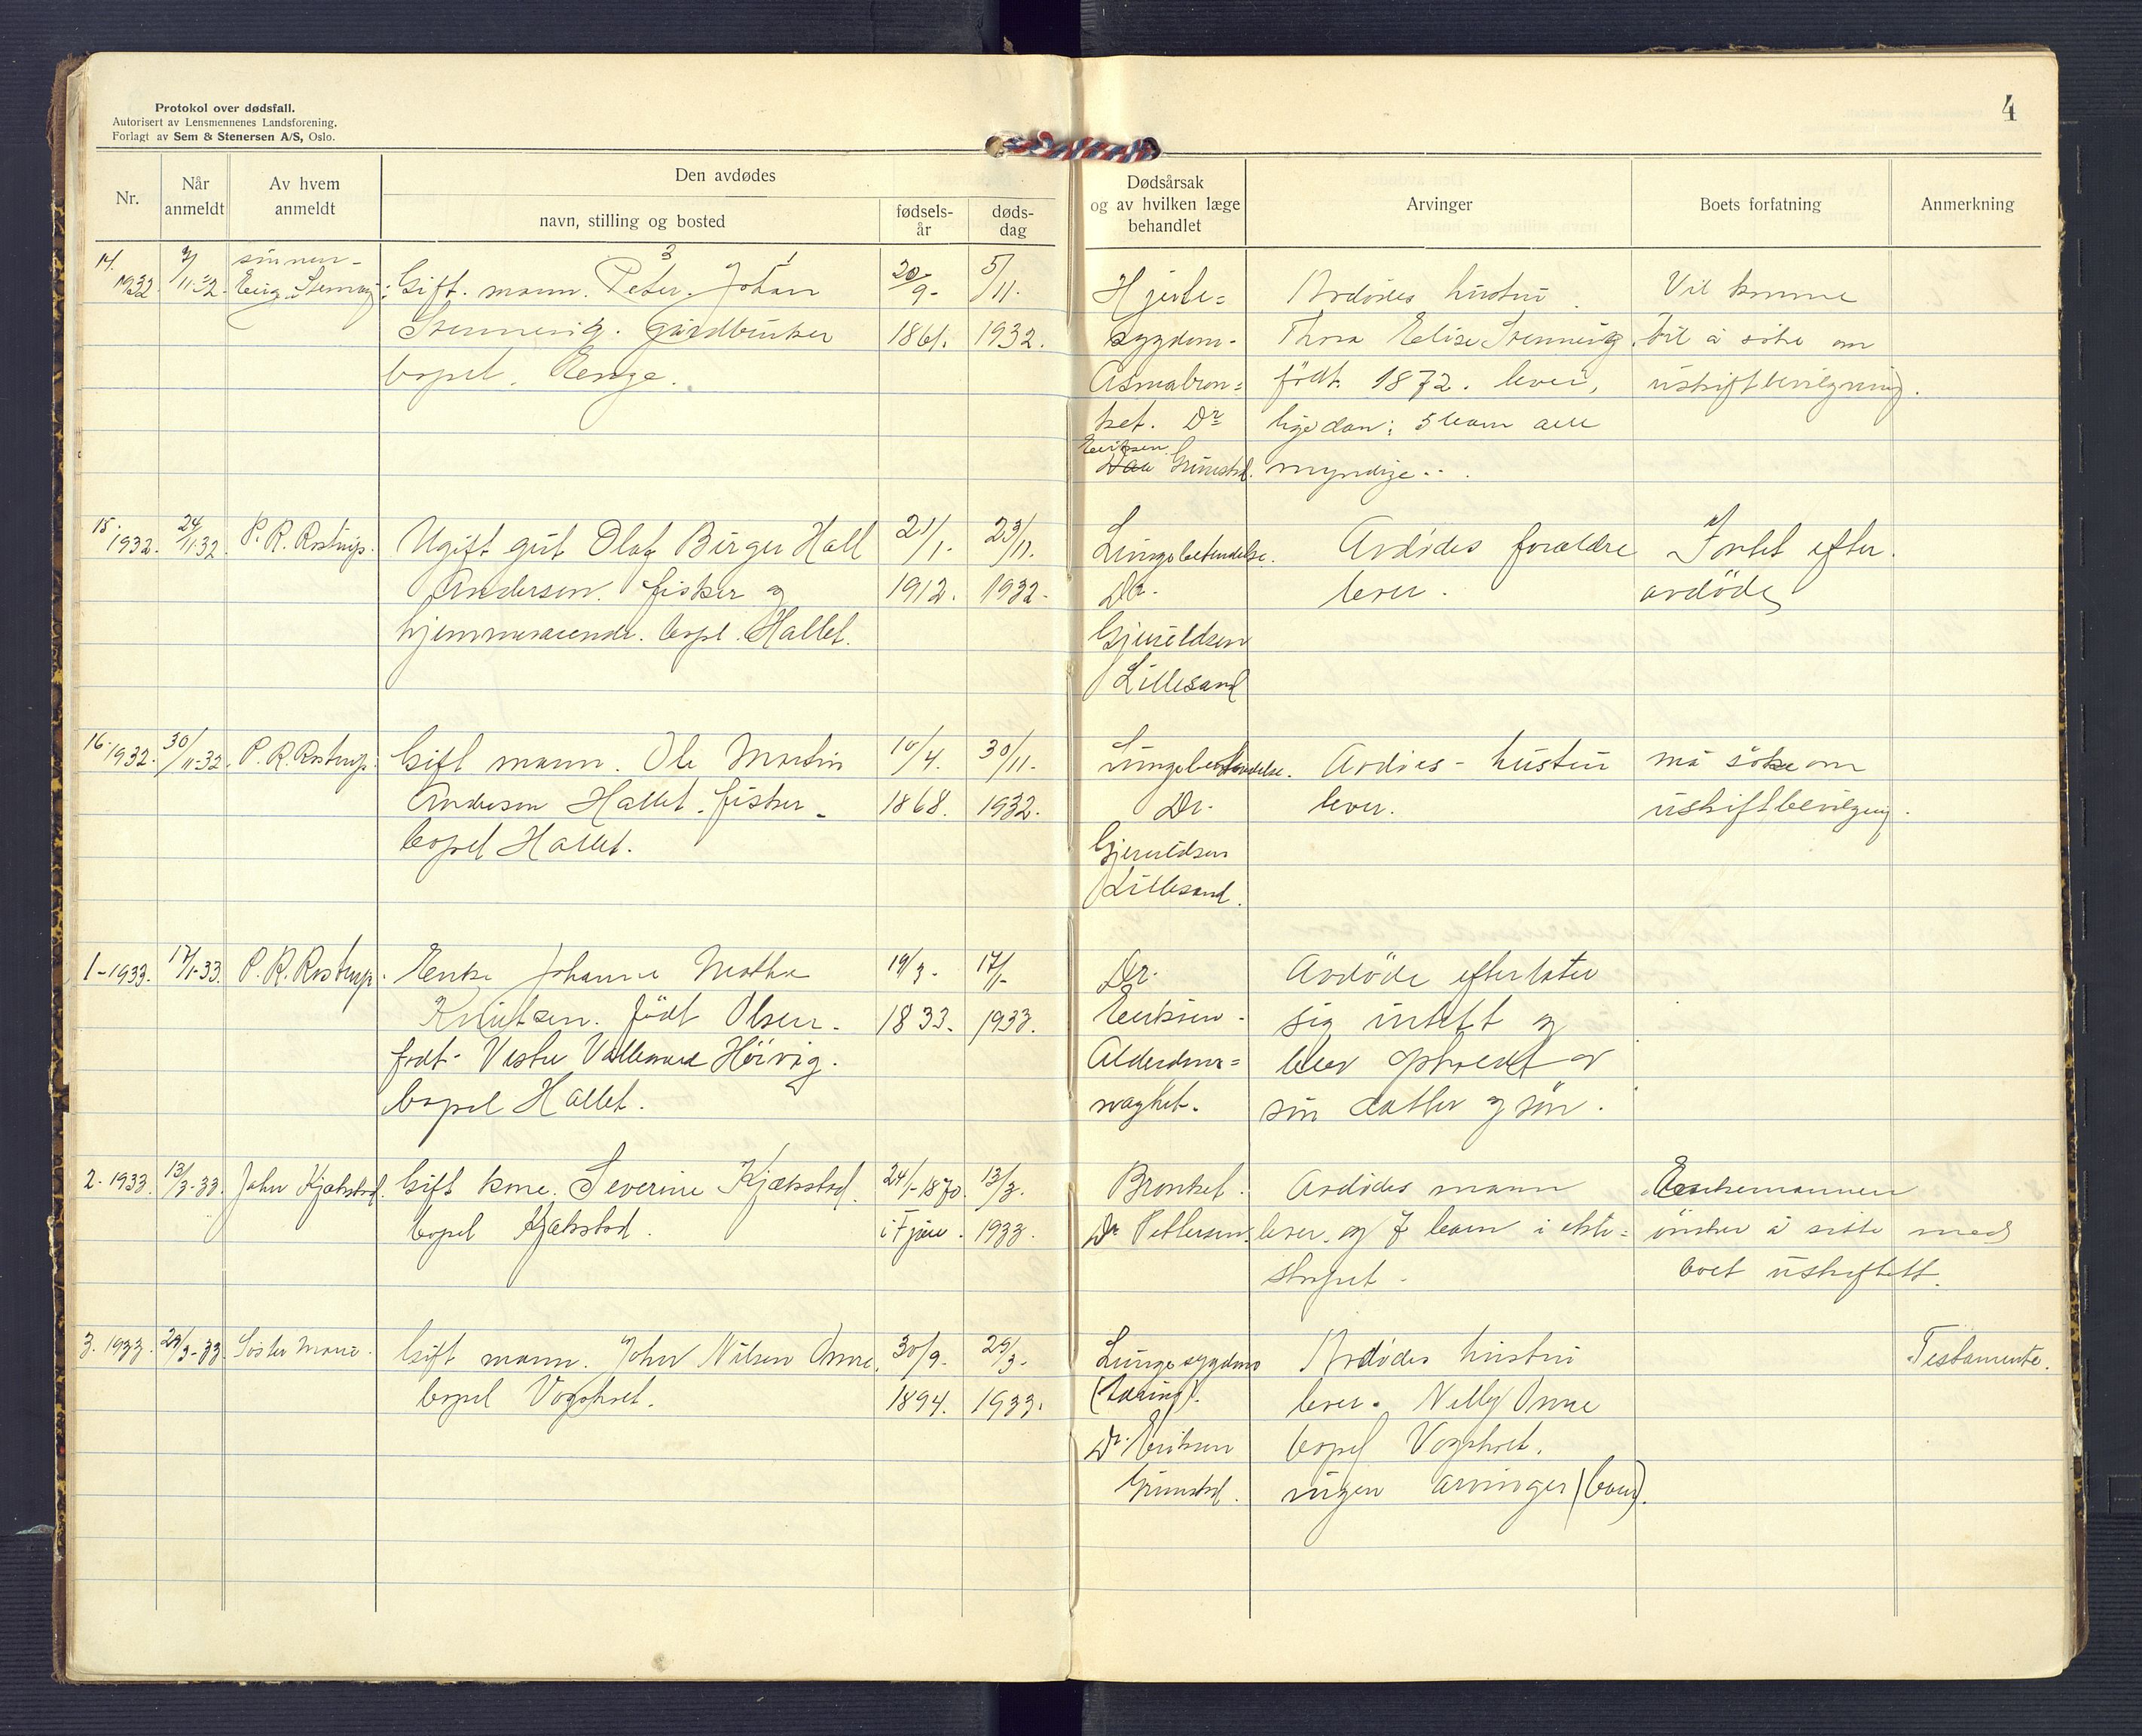 Protokol over dødsfall.
Autorisert av Lensmennenes Landsforening.
Forlagt av Sem & Stenersen A/S, Oslo.
4
Nr.
Når anmeldt
Av hvem anmeldt
Den avdødes
navn, stilling og bosted
fødsels-år
døds-dag
Dødsårsak og av hvilken læge behandlet
Arvinger
Boets forfatning
Anmerkning
14.
1932
11-32.
sønnen -
Gift. mann. Peter. Johan
3 1
gårdbruker
bopel. Eenge.
20/9-
1861.
5/11.
1932.
Hjerte=
sygdom-
Asmabron=
ket. Dr
Eeriksen
Grimstad.
Avdødes hustru
Thora Elise
født 1872. lever,
ligedan: 5 barn alle
myndige..
Vil komme
til å söke om
uskiftbevilgning.
15.
1932.
24/11-32.
P. R. Rostrup.
Ugift gut Olaf Birger Hall
Andersen. fisker og
hjemmeværende. bopl. Hallet.
21/1-
1912.
23/11.
1932-
Lungebetendelse.
Dr.
Gjeruldsen
Lillesand
Avdødes forældre
lever.
Intet efter
avdøde
16.
1932.
30/11-32.
P. R. Rostrup.
Gift mann. Ole Martin
Andersen Hallet. fisker -
bopel Hallet.
10/4.
1868.
30/11.
1932.
Lungebetendelse.
Dr.
Gjeruldsen
Lillesand.
Avdøes - hustru
lever.
må söke om
uskiftbevilgning.
1-1933.
17/1-33.
P. R. Rostrup.
Enke Johanne Marthe
Knutsen. født Olsen.
født- Vestre Vallesverd Høivig.
bopel Hallet.
19/3-
1833.
17/1-
1933.
Dr.
Eeriksen-
Alderdoms=
svaghet.
Avdöde efterlater
sig intett og
blev opholdt av
sin datter og sön.
2-1933.
13/3-33.
John Kjækstad.
Gift kone. Severine Kjækstad.
bopel Kjækstad.
24/1-1870.
i Fjære.
13/3.
1933.
Bronket.
Dr Pettersen.
Avdödes mann
lever. og 7 barn i ekte=
skapet-
Enkemannen
önsker å sitte med
boet uskiftett.
3.1933.
29/3-33.
Søster Marie.
Gift mann. John Nilsen Omre.
bopel Vagsholt.
30/9-
1894.
29/3-
1933.
Lungesygdom
(tæring).
Dr. Eeriksen
Grimstad.
Avdödes hustru
lever. Nelly Omre
bopel Vagsholt.
ingen arvinger (barn).
Testamente.